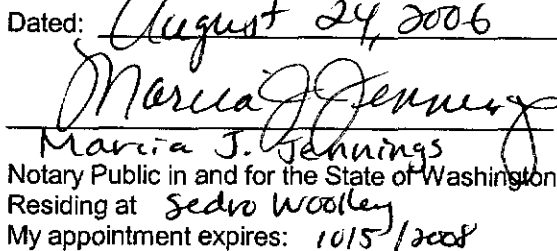 Dated: August 24, 2006
Marcia J Jennings
Marcia J. Jennings
Notary Public in and for the State of Washington
Residing at Sedro Woolley
My appointment expires: 10/5/2008